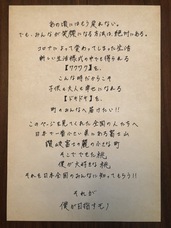 あの頃にはもう戻れない。
でも、みんなが笑顔になる方法は、絶対にある。
コロナによって変わってしまった生活
新しい生活様式の中でも得られる
【ワクワク】を、
こんな時だからこそ
子供も大人も幸せになれる
【ドキドキ】を、
町のみんなへ届けたい!!
このページを見てくれた全国の人たちへ
日本で一番小さい県にある富士山
讃岐富士の麓の小さな町
そこでできた桃、
僕が大好きな桃、
それを日本全国のみんなに知ってもらう!!
それが
僕が目指すもの!